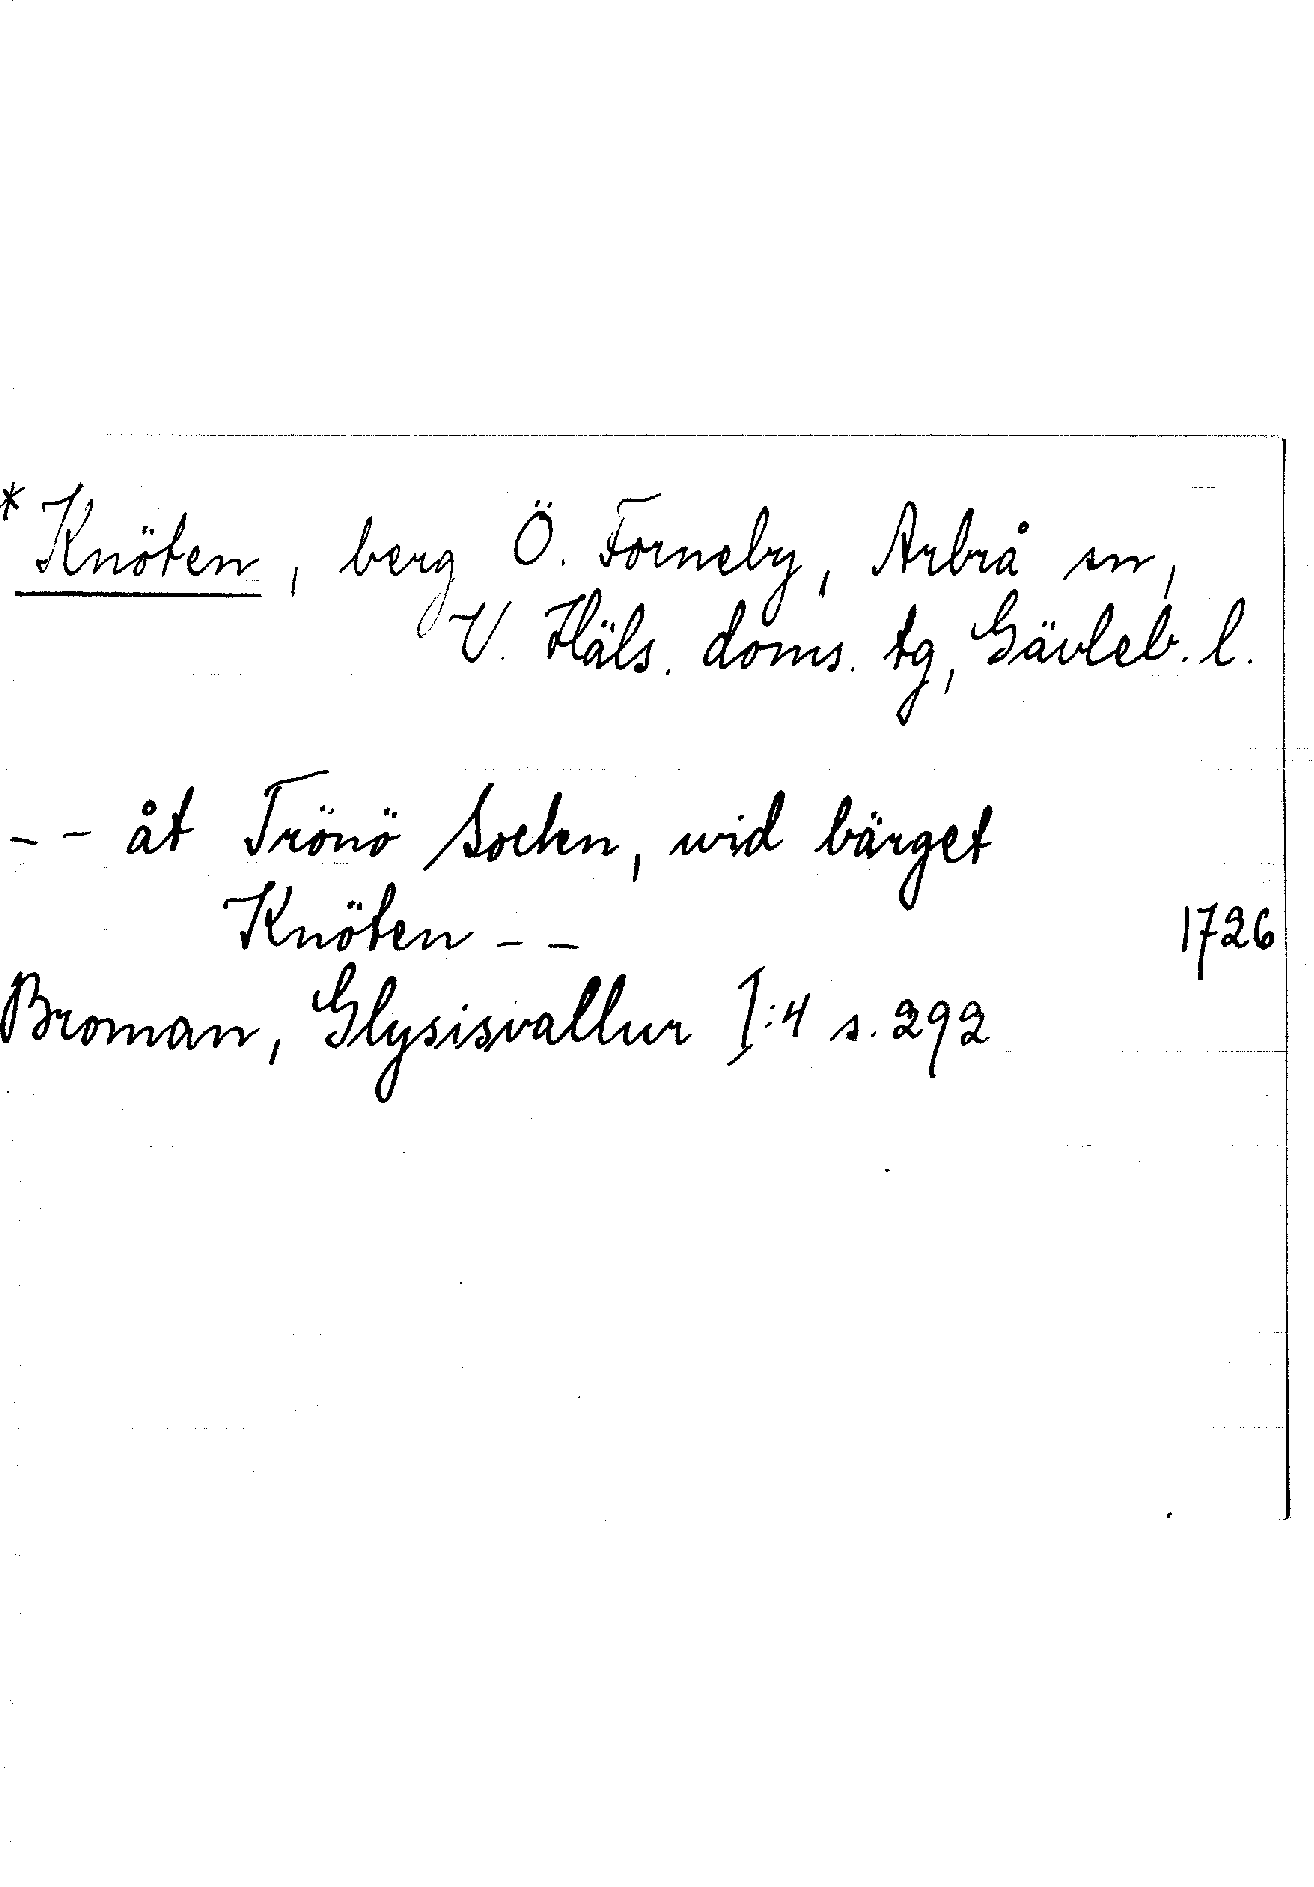 * Knöten, berg Ö. Forneby, Arbrå sn,
V. Häls. doms. tg, Gävleb. l.
-- åt Trönö Socken, wid bärget
Knöten -- 1726
Broman, Glysisvallur I:4 s. 292